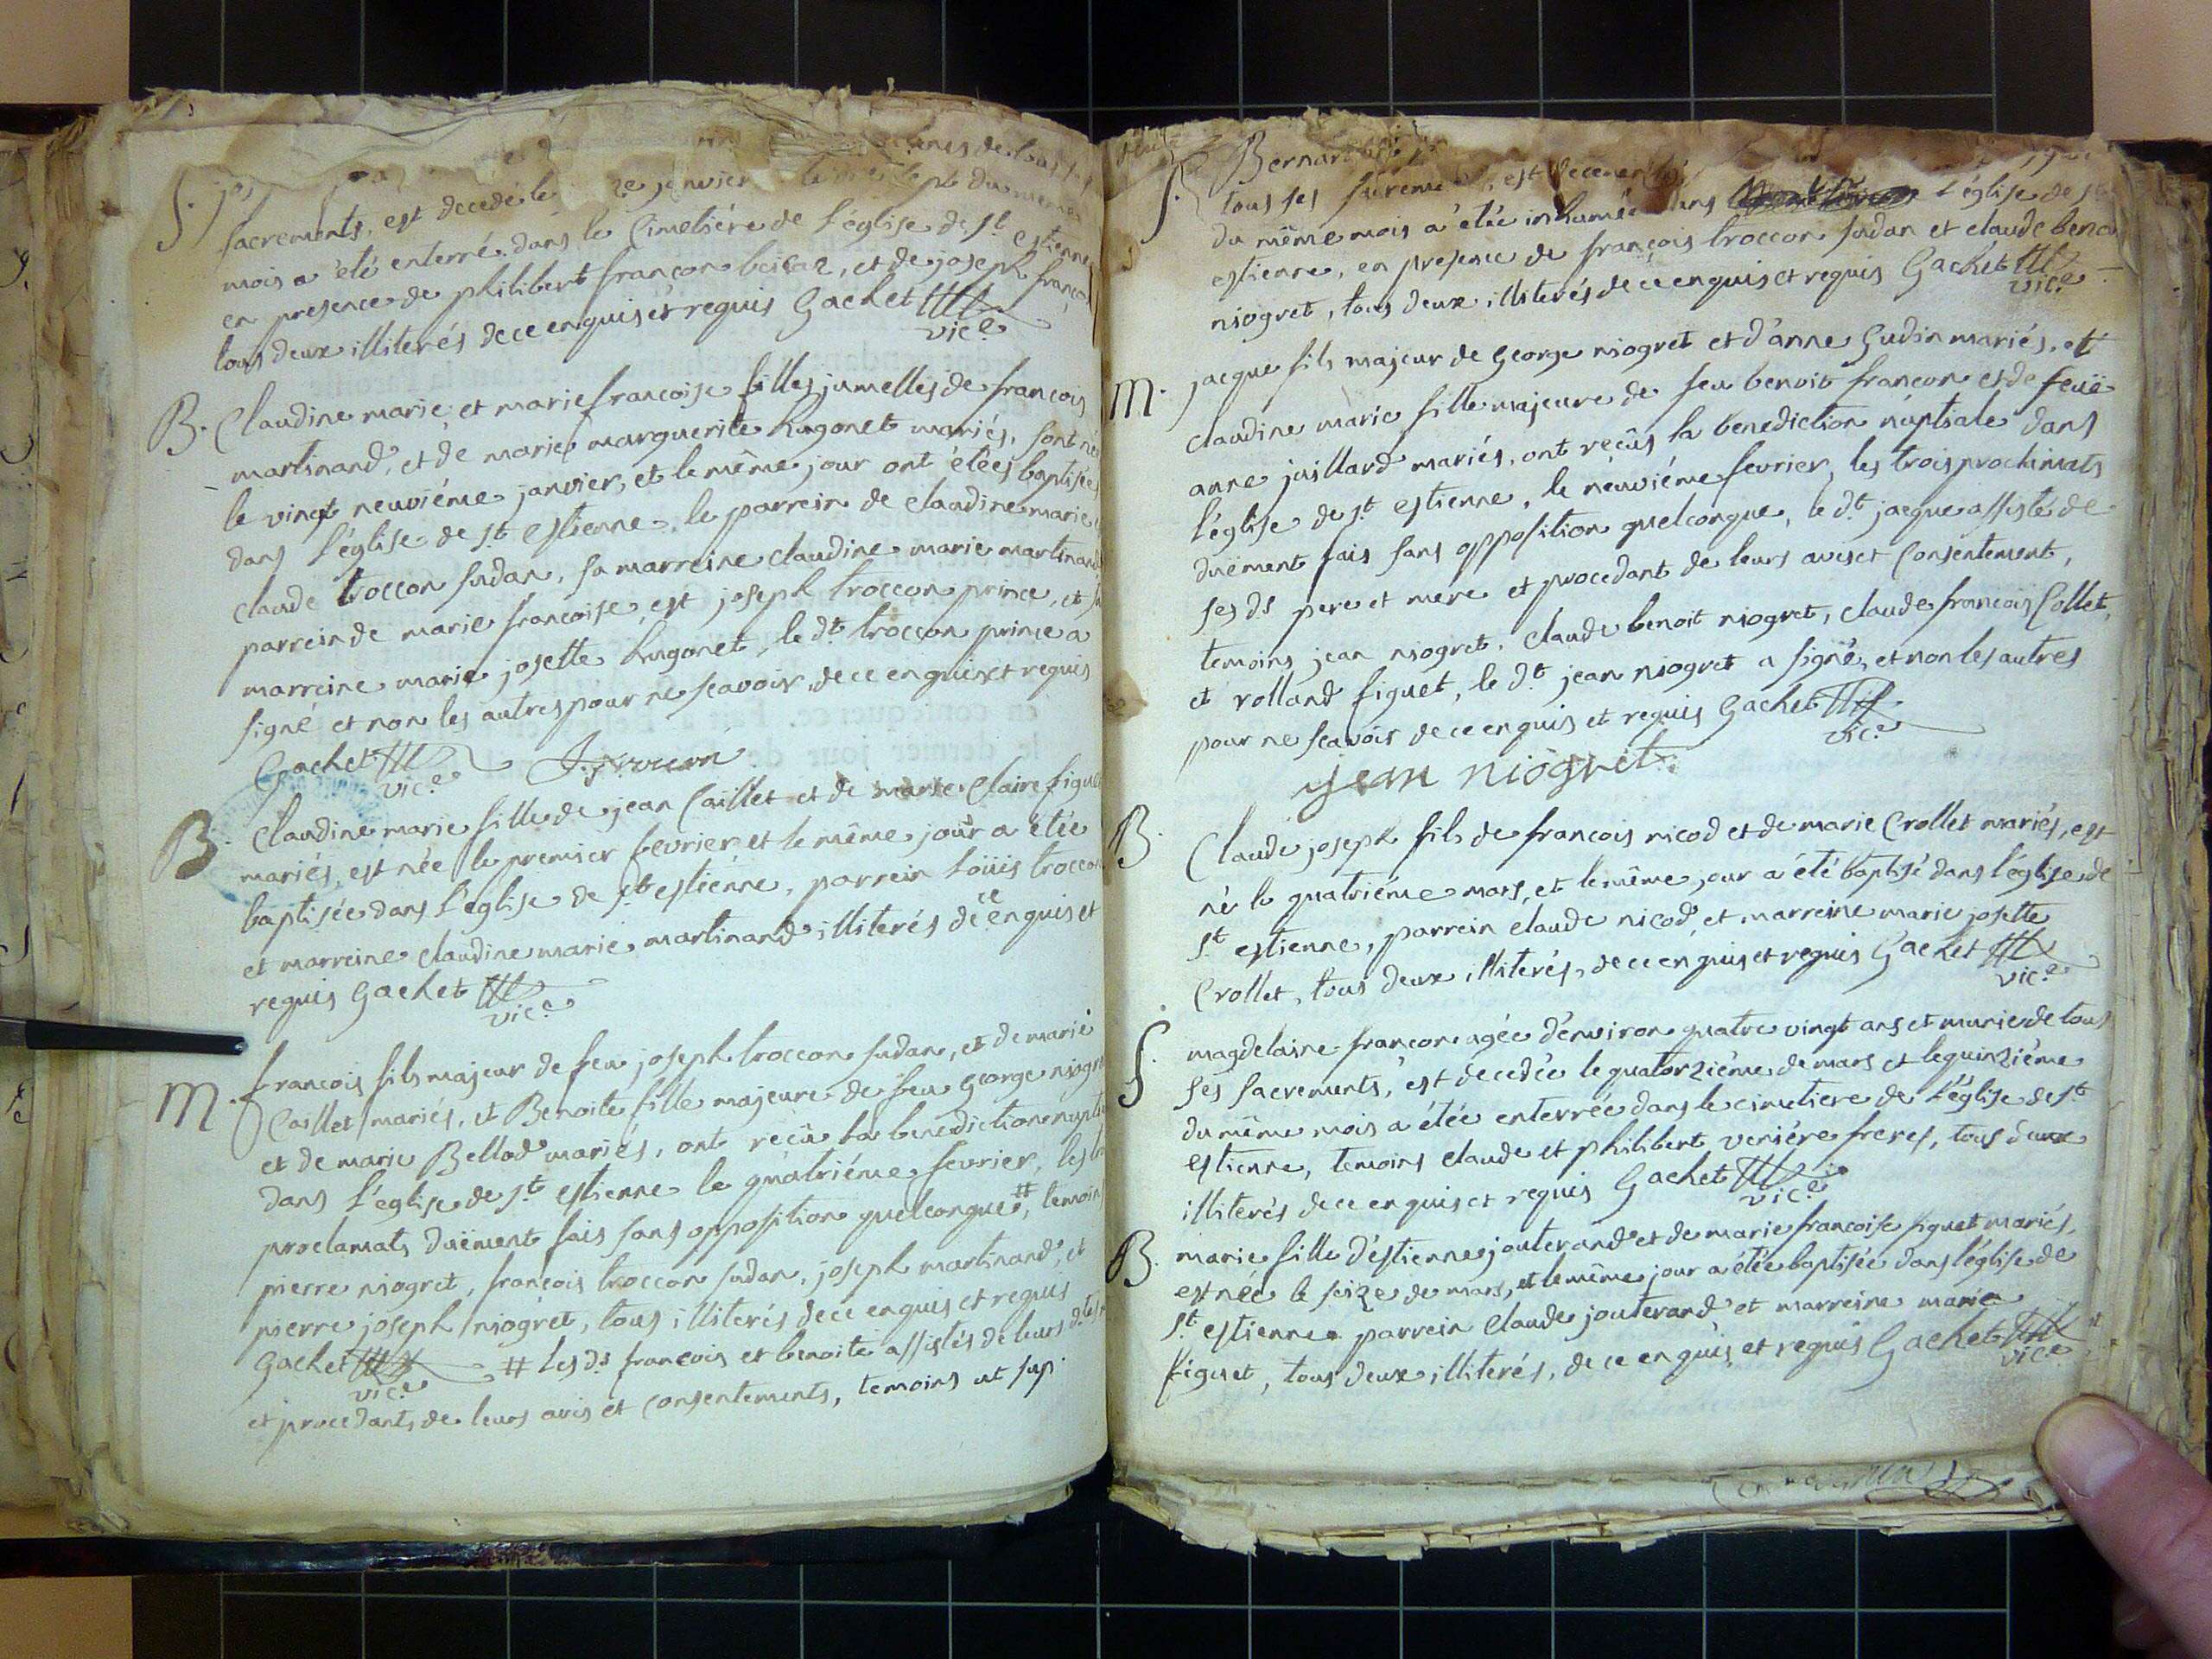 S. jos
sacrements, est decedé le janvier du meme
mois a été enterré dans le Cimetiére de l'église de st estienne
en presence de philibert françon beisar, et de joseph françon
tous deux illiterés de ce enquis et requis Gachet
vic.e
B. Claudine marie et marie francoise filles jumelles de françois
martinand, et de marie marguerite hugonet mariés, sont né
le vingt neuviéme janvier, et le même jour ont étées baptisées
dans l'église de st estienne. le parrein de claudine marie
claude troccon sudan, sa marreine claudine marie martinand
parrein de marie francoise, est joseph troccon prince, et sa
marreine marie josette hugonet, le dt troccon prince a
signé et non les autres pour ne scavoir, de ce enquis et requis
Gachet J. troccon
vic.e
B. Claudine marie fille de jean Caillet et de marie Claire figuet
mariés, est née le premier fevrier et le même jour a étée
baptisée dans l'église de st estienne, parrein Loüis troccon
et marreine claudine marie martinand illiterés de ce enquis et
requis Gachet
vic.e
M. francois fils majeur de feu joseph troccon sudan, et de marie
Caillet mariés, et Benoite fille majeure de feu George niogret
et de marie Bellod mariés, ont recüs la benediction nuptia
dans l'église de st estienne le quatriéme fevrier, les tr
proclamats duëment fais sans opposition quelconque #, temoins
pierre niogret, françois troccon sudan, joseph martinand, et
pierre joseph niogret, tous illiterés de ce enquis et requis
Gachet # Les ds francois et benoite assistés de leurs dtes
vic.e
et procedants de leurs avis et Consentements, temoins ut sup.
S. Bernar
tous ses sacreme est decedé
du même mois a étée inhumée dans l'église de st
estienne, en presence de françois troccon sudan et claude benoi
niogret, tous deux illiterés de ce enquis et requis Gachet
vic.e
M. jacque fils majeur de George niogret et d'anne Gudin mariés, et
claudine marie fille majeure de feu benoit françon et de feuë
anne juillard mariés, ont recüs la benediction nuptiale dans
l'église de st estienne, le neuviéme fevrier, les trois proclamats
duëment fais sans opposition quelconque, le dt jacque assisté de
ses ds pere et mere et procedant de leurs avis et Consentement,
temoins jean niogret, claude benoit niogret, claude françois Collet,
et rolland figuet, le dt jean niogret a signé, et non les autres
pour ne scavoir de ce enquis et requis Gachet
vic.e
jean niogret
B. Claude joseph fils de francois nicod et de marie Crollet mariés, est
né le quatriéme mars, et le même jour a été baptisé dans l'église de
st estienne, parrein claude nicod, et marreine marie josette
Crollet, tous deux illiterés, de ce enquis et requis Gachet
vic.e
S. magdelaine françon agée d'environ quatre vingt ans et munie de tous
ses sacrements, est decedée le quatorziéme de mars et le quinziéme
du même mois a étée enterrée dans le cimetiere de l'église de st
estienne, temoins claude et philibert veniére freres, tous deux
illiterés de ce enquis et requis Gachet
vic.e
B. marie fille d'estienne jouterand et de marie francoise figuet mariés,
est née le seize de mars, et le même jour a étée baptisée dans l'église de
st estienne. parrein claude jouterand et marreine marie
figuet, tous deux illiterés, de ce enquis et requis Gachet
vic.e